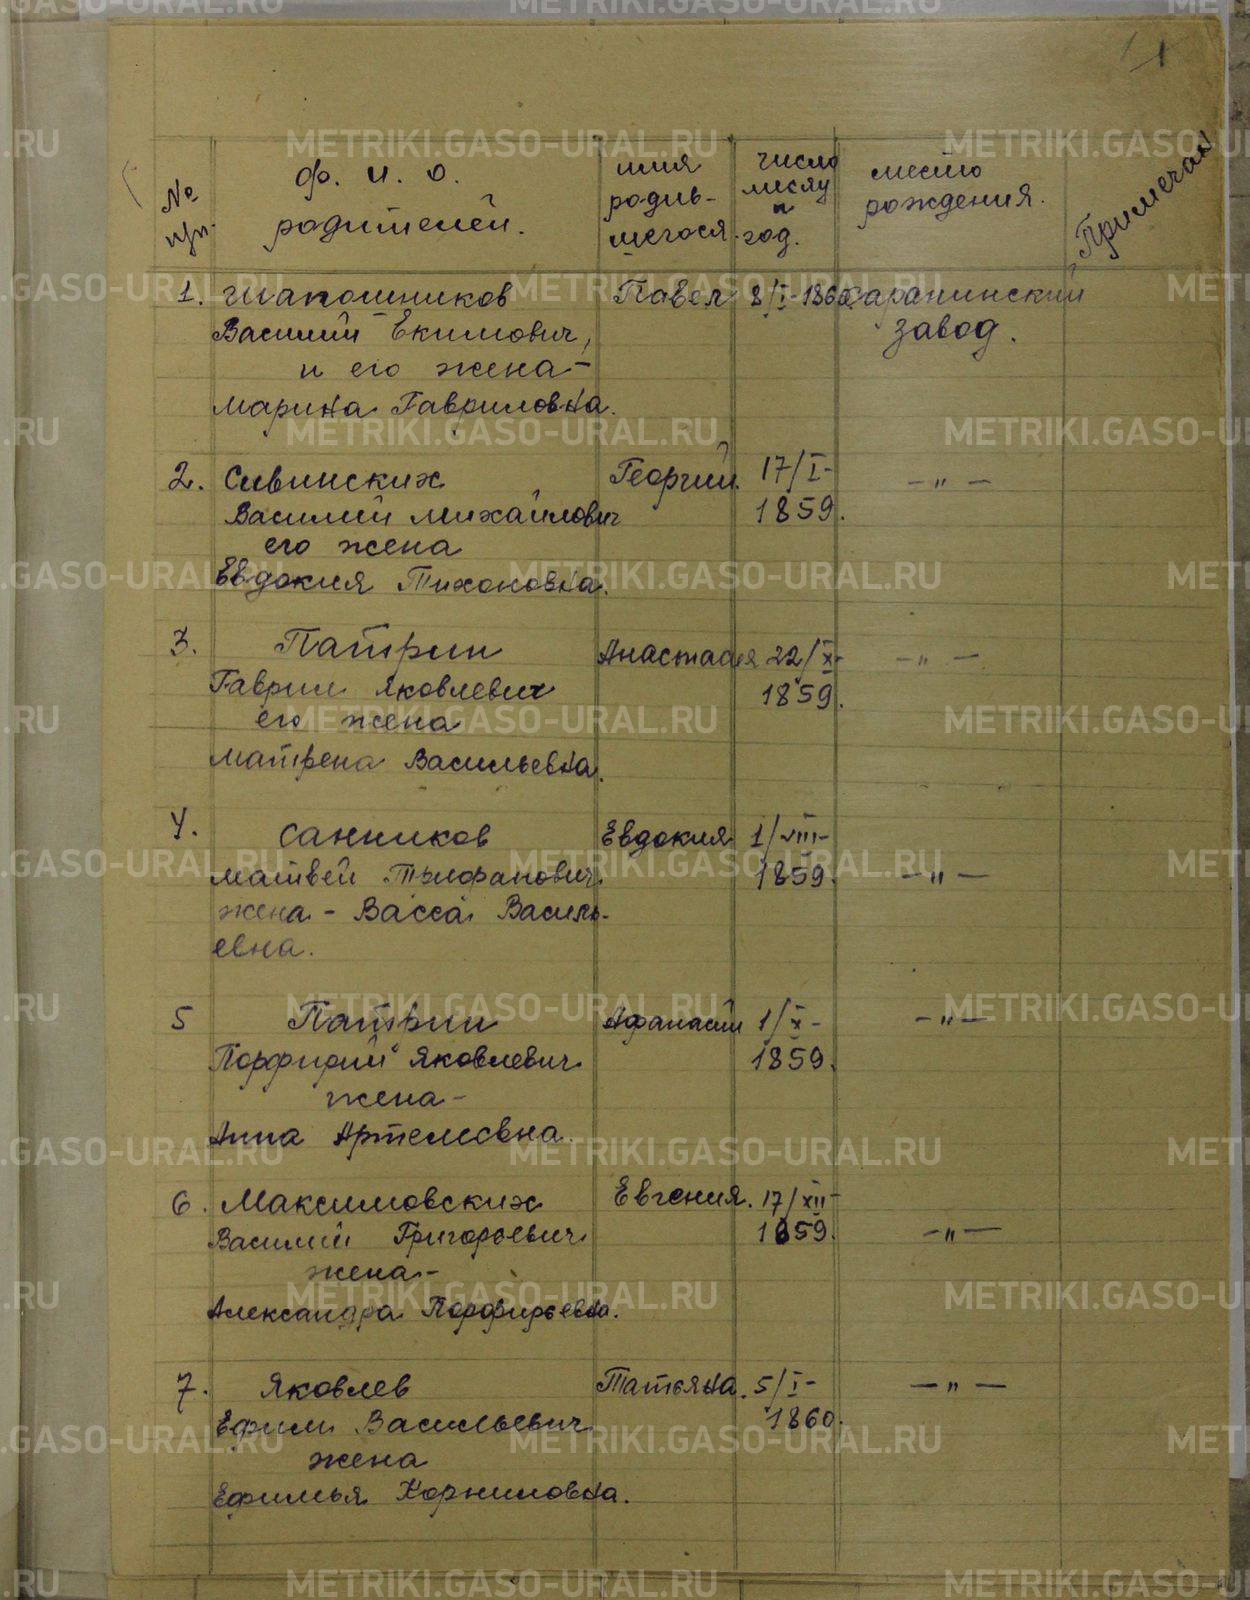 1
№ п/п.
ф. и. о. родителей.
имя родив- шегося.
число месяц и год.
место рождения.
Примечан
1. Шапошников Павел 8/I-1860 Сарапинский
Василий Екимович, завод.
и его жена-
Марина Гавриловна.
2. Сивинских Георгий. 17/I- -"-
Василий Михайлович 1859.
его жена
Евдокия Тихоновна.
3. Патрин Анастасия 22/X- -"-
Гаврил Яковлевич 1859.
его жена
Матрена Васильевна.
4. Санников Евдокия 1/VIII-
Матвей 1859. -"-
жена - Васса Василь-
евна.
5 Патрин Афанасий 1/X- -"-
Порфирий Яковлевич 1859.
жена-
Анна Артемовна.
6. Максимовских Евгения. 17/XII-
Василий Григорьевич 1859. -"-
жена-
Александра Порфирьевна.
7. Яковлев Татьяна. 5/I- -"-
Ефим Васильевич 1860.
жена
Ефимья Корниловна.
METRIKI.GASO-URAL.RU